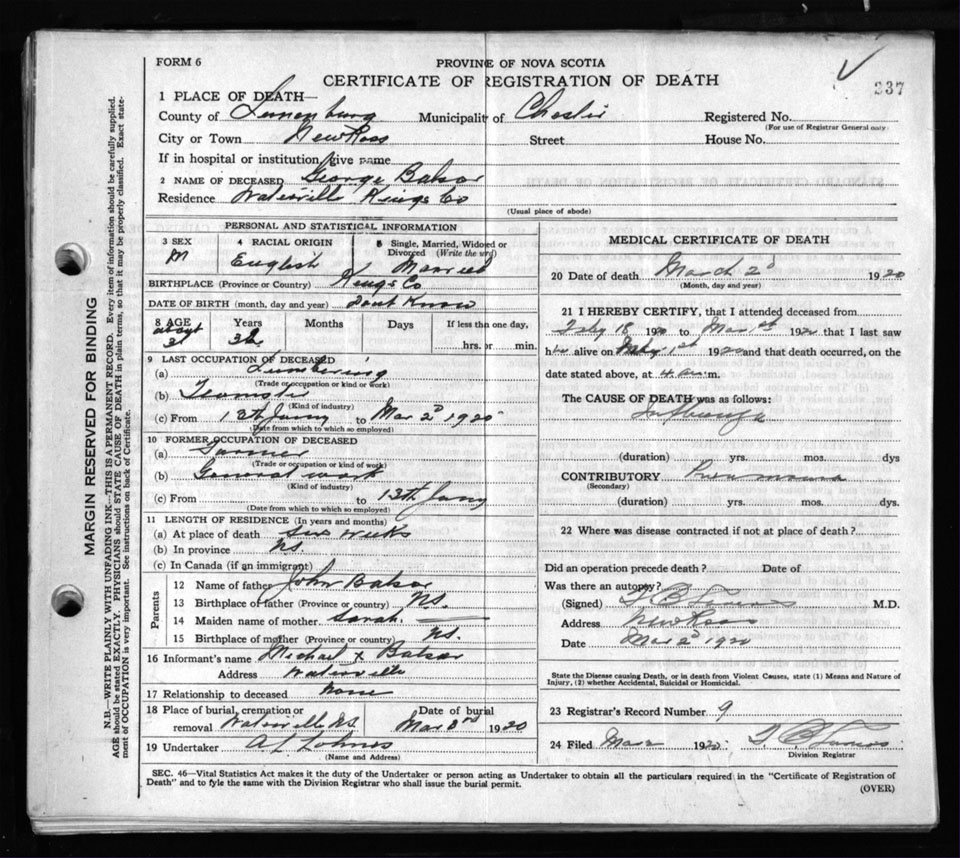 FORM 6
PROVINCE OF NOVA SCOTIA
CERTIFICATE OF REGISTRATION OF DEATH
237
1 PLACE OF DEATH—
County of Lunenburg Municipality of Chester Registered No.
(For use of Registrar General only)
City or Town New Ross Street House No.
If in hospital or institution, give name
2 NAME OF DECEASED George Balsor
Residence Waterville Kings Co
(Usual place of abode)
PERSONAL AND STATISTICAL INFORMATION
3 SEX M
4 RACIAL ORIGIN English
5 Single, Married, Widowed or Divorced (Write the word) Married
BIRTHPLACE (Province or Country) Kings Co
DATE OF BIRTH (month, day and year) Dont Know
8 AGE about Years Months Days If less than one day, hrs. or min.
9 LAST OCCUPATION OF DECEASED
(a) Lumbering
(Trade or occupation or kind of work)
(b) Teamster
(Kind of industry)
(c) From 13th Jany to Mar 2d 1920
(Date from which to which so employed)
10 FORMER OCCUPATION OF DECEASED
(a) Farmer
(Trade or occupation or kind of work)
(b) General work
(Kind of industry)
(c) From to 13th Jany
(Date from which to which so employed)
11 LENGTH OF RESIDENCE (In years and months)
(a) At place of death six weeks
(b) In province NS.
(c) In Canada (if an immigrant)
Parents
12 Name of father John Balsor
13 Birthplace of father (Province or country) NS.
14 Maiden name of mother Sarah
15 Birthplace of mother (Province or country) NS.
16 Informant's name Michael x Balsor
Address Waterville
17 Relationship to deceased None
18 Place of burial, cremation or removal Waterville NS
Date of burial Mar 3rd 1920
19 Undertaker A L Lohnes
(Name and Address)
MEDICAL CERTIFICATE OF DEATH
20 Date of death March 2d 1920
(Month, day and year)
21 I HEREBY CERTIFY, that I attended deceased from
Feby 18 1920 to Mar 1st 1920 that I last saw
him alive on 1st 1920 and that death occurred, on the
date stated above, at 4 a.m.
The CAUSE OF DEATH was as follows:
Influenza
(duration) yrs. mos. dys
CONTRIBUTORY Pneumonia
(Secondary)
(duration) yrs. mos. dys.
22 Where was disease contracted if not at place of death?
Did an operation precede death? Date of
Was there an autopsy?
(Signed) M.D.
Address New Ross
Date Mar 2d 1920
State the Disease causing Death, or in death from Violent Causes, state (1) Means and Nature of
Injury, (2) whether Accidental, Suicidal or Homicidal.
23 Registrar's Record Number 9
24 Filed Mar 2 1920
Division Registrar
SEC. 46—Vital Statistics Act makes it the duty of the Undertaker or person acting as Undertaker to obtain all the particulars required in the "Certificate of Registration of
Death" and to fyle the same with the Division Registrar who shall issue the burial permit.
(OVER)
MARGIN RESERVED FOR BINDING
N.B.—WRITE PLAINLY WITH UNFADING INK—THIS IS A PERMANENT RECORD. Every item of information should be carefully supplied.
AGE should be stated EXACTLY. PHYSICIANS should STATE CAUSE OF DEATH in plain terms, so that it may be properly classified. Exact state-
ment of OCCUPATION is very important. See instructions on back of Certificate.